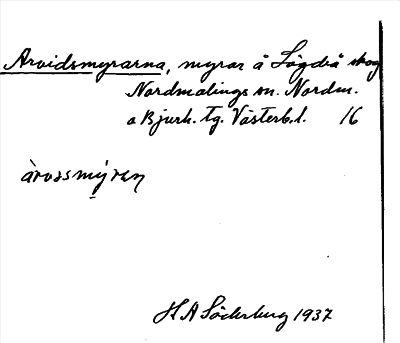 Arvidsmyrarna, myrar å Lögdeå skog
Nordmalings sn. Nordm.
o Bjurh. tg. Västerb.l. 16
àrvssmýren
H A Söderberg 1937